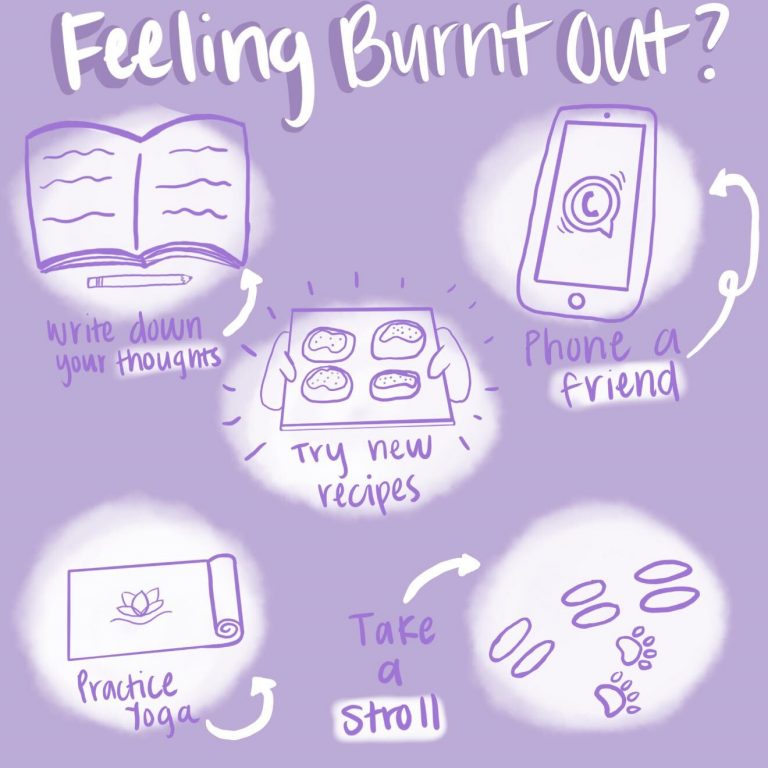 Feeling Burnt Out?
write down
your thoughts
Phone a
friend
Try new
recipes
Practice
Yoga
Take
a
stroll